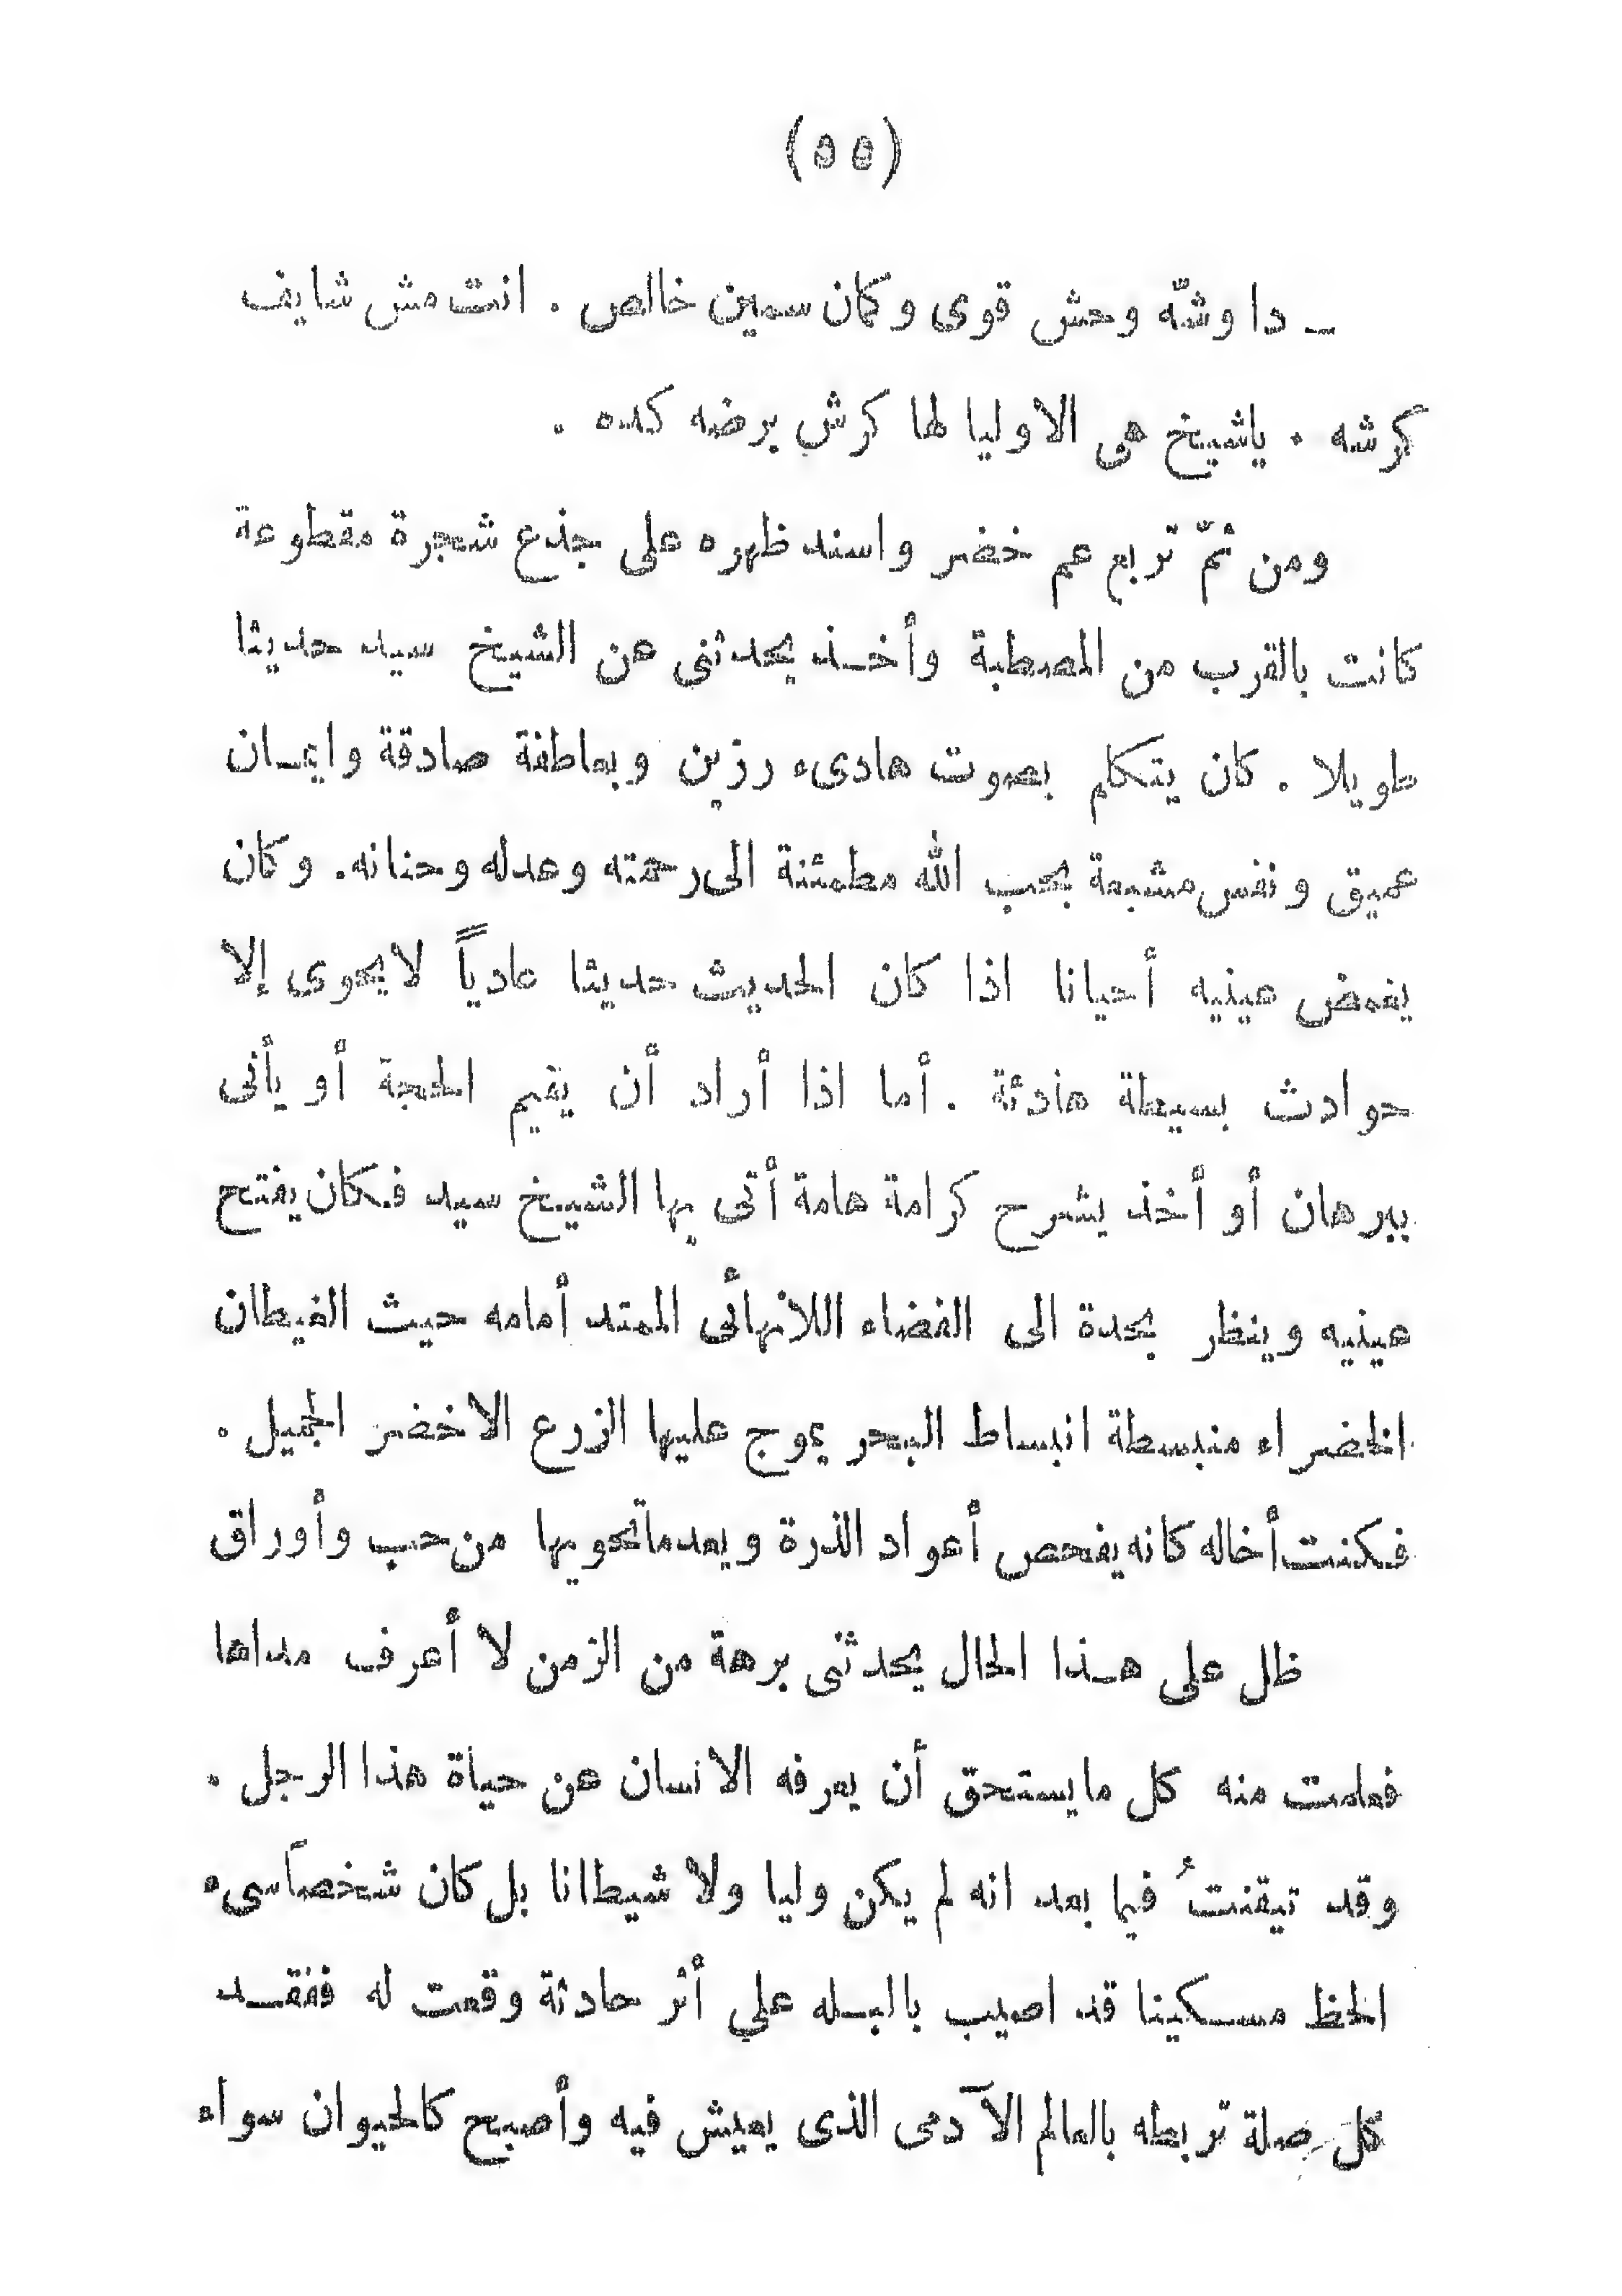 (٥٥)
ـ دا وشّه وحش قوى وكمان سمين خالص . انت مش شايف
كرشه . ياشيخ هى الاوليا لها كرش برضه كده .
ومن ثمّ تربع عم خضر واسند ظهره على جذع شجرة مقطوعة
كانت بالقرب من المصطبة وأخـذ يحدثنى عن الشيخ سيد حديثا
طويلا . كان يتكلم بصوت هادىء رزين وبعاطفة صادقة وايمـان
عميق ونفس مشبعة بحب الله مطمئنة الى رحمته وعدله وحنانه. وكان
يغمض عينيه أحيانا اذا كان الحديث حديثا عادياً لايحوى إلا
حوادث بسيطة هادئة . أما اذا أراد أن يقيم الحجة أو يأتى
ببرهان أو أخذ يشرح كرامة هامة أتى بها الشيخ سيد فـكان يفتح
عينيه وينظر بحدة الى الفضاء اللانهائى الممتد أمامه حيث الغيطان
الخضراء منبسطة انبساط البحر يموج عليها الزرع الاخضر الجميل .
فـكنت أخاله كانه يفحص أعواد الذرة ويعد ماتحويها من حب وأوراق
ظل على هـذا الحال يحدثنى برهة من الزمن لا أعرف مداها
فعلمت منه كل مايستحق أن يعرفه الانسان عن حياة هذا الرجل .
وقد تيقنتُ فيما بعد انه لم يكن وليا ولا شيطانا بل كان شخصاً سىء
الحظ مسـكينا قد اصيب بالبـله علي أثر حادثة وقعت له ففقـد
كل صلة تربطه بالعالم الآدمى الذى يعيش فيه وأصبح كالحيوان سواء